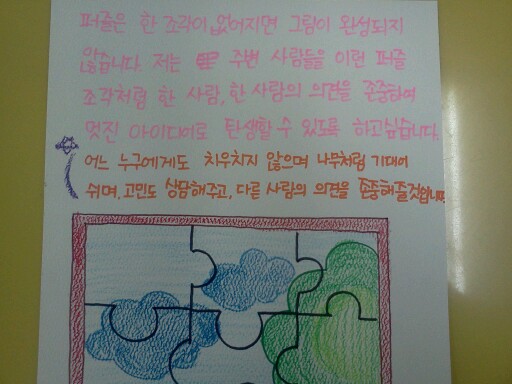 퍼즐은 한 조각이 없어지면 그림이 완성되지
않습니다. 저는 주변 사람들을 이런 퍼즐
조각처럼 한 사람, 한 사람의 의견을 존중하여
멋진 아이디어로 탄생할 수 있도록 하고싶습니다.
어느 누구에게도 치우치지 않으며 나무처럼 기대어
쉬며, 고민도 상담해주고, 다른 사람의 의견을 존중해줄것입니다